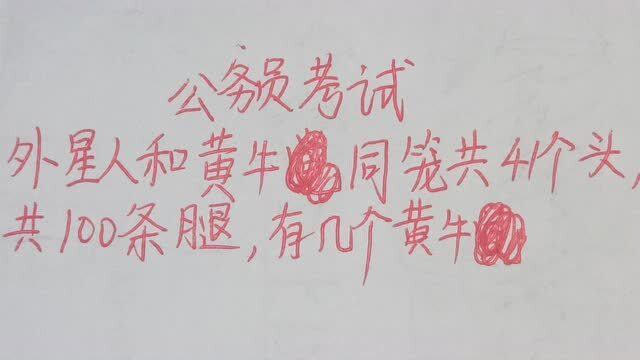 公务员考试
外星人和黄牛同笼共41个头,
共100条腿,有几个黄牛